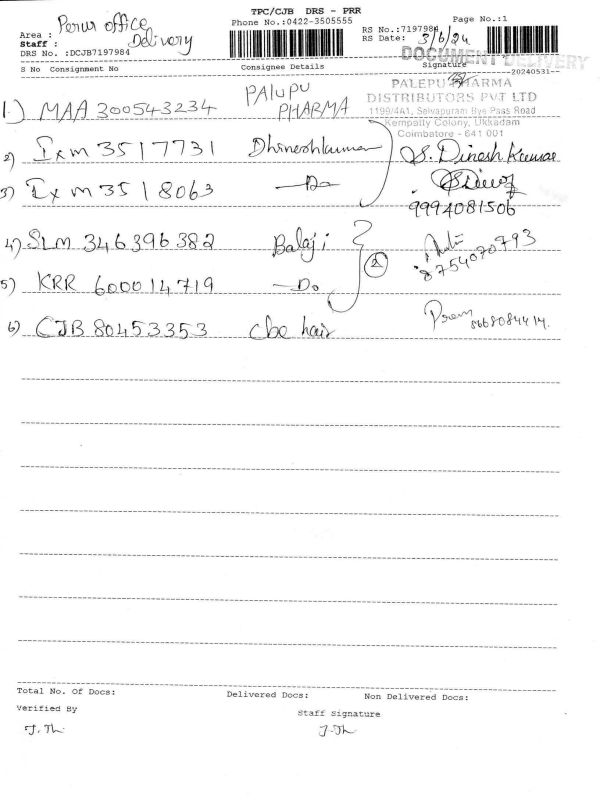 TPC/CJB DRS - PRR
Phone No.:0422-3505555
Page No.:1
Area : Perur office
Staff : Delivery
DRS No. :DCJB7197984
RS No.:7197984
RS Date: 3/6/24
DOCUMENT DELIVERY
S No Consignment No Consignee Details Signature
--20240531--
PALEPU PHARMA
DISTRIBUTORS PVT LTD
1199/4A1, Selvapuram Bye Paas Road
Kempatty Colony, Ukkadam
Coimbatore - 641 001
1.) MAA 300543234 PALUPU PHARMA
2) Ixm 3517731 Dhineshkumar S. Dinesh Kumar
3) Ixm 3518063 —Do—
9994081506
4) SLM 346396382 Balaji
8754070793
5) KRR 600014719 —Do 2
6) CJB 80453353 cbe hair Prem
8668084414.
Total No. Of Docs: Delivered Docs: Non Delivered Docs:
Verified By Staff Signature
J. Th J. Th